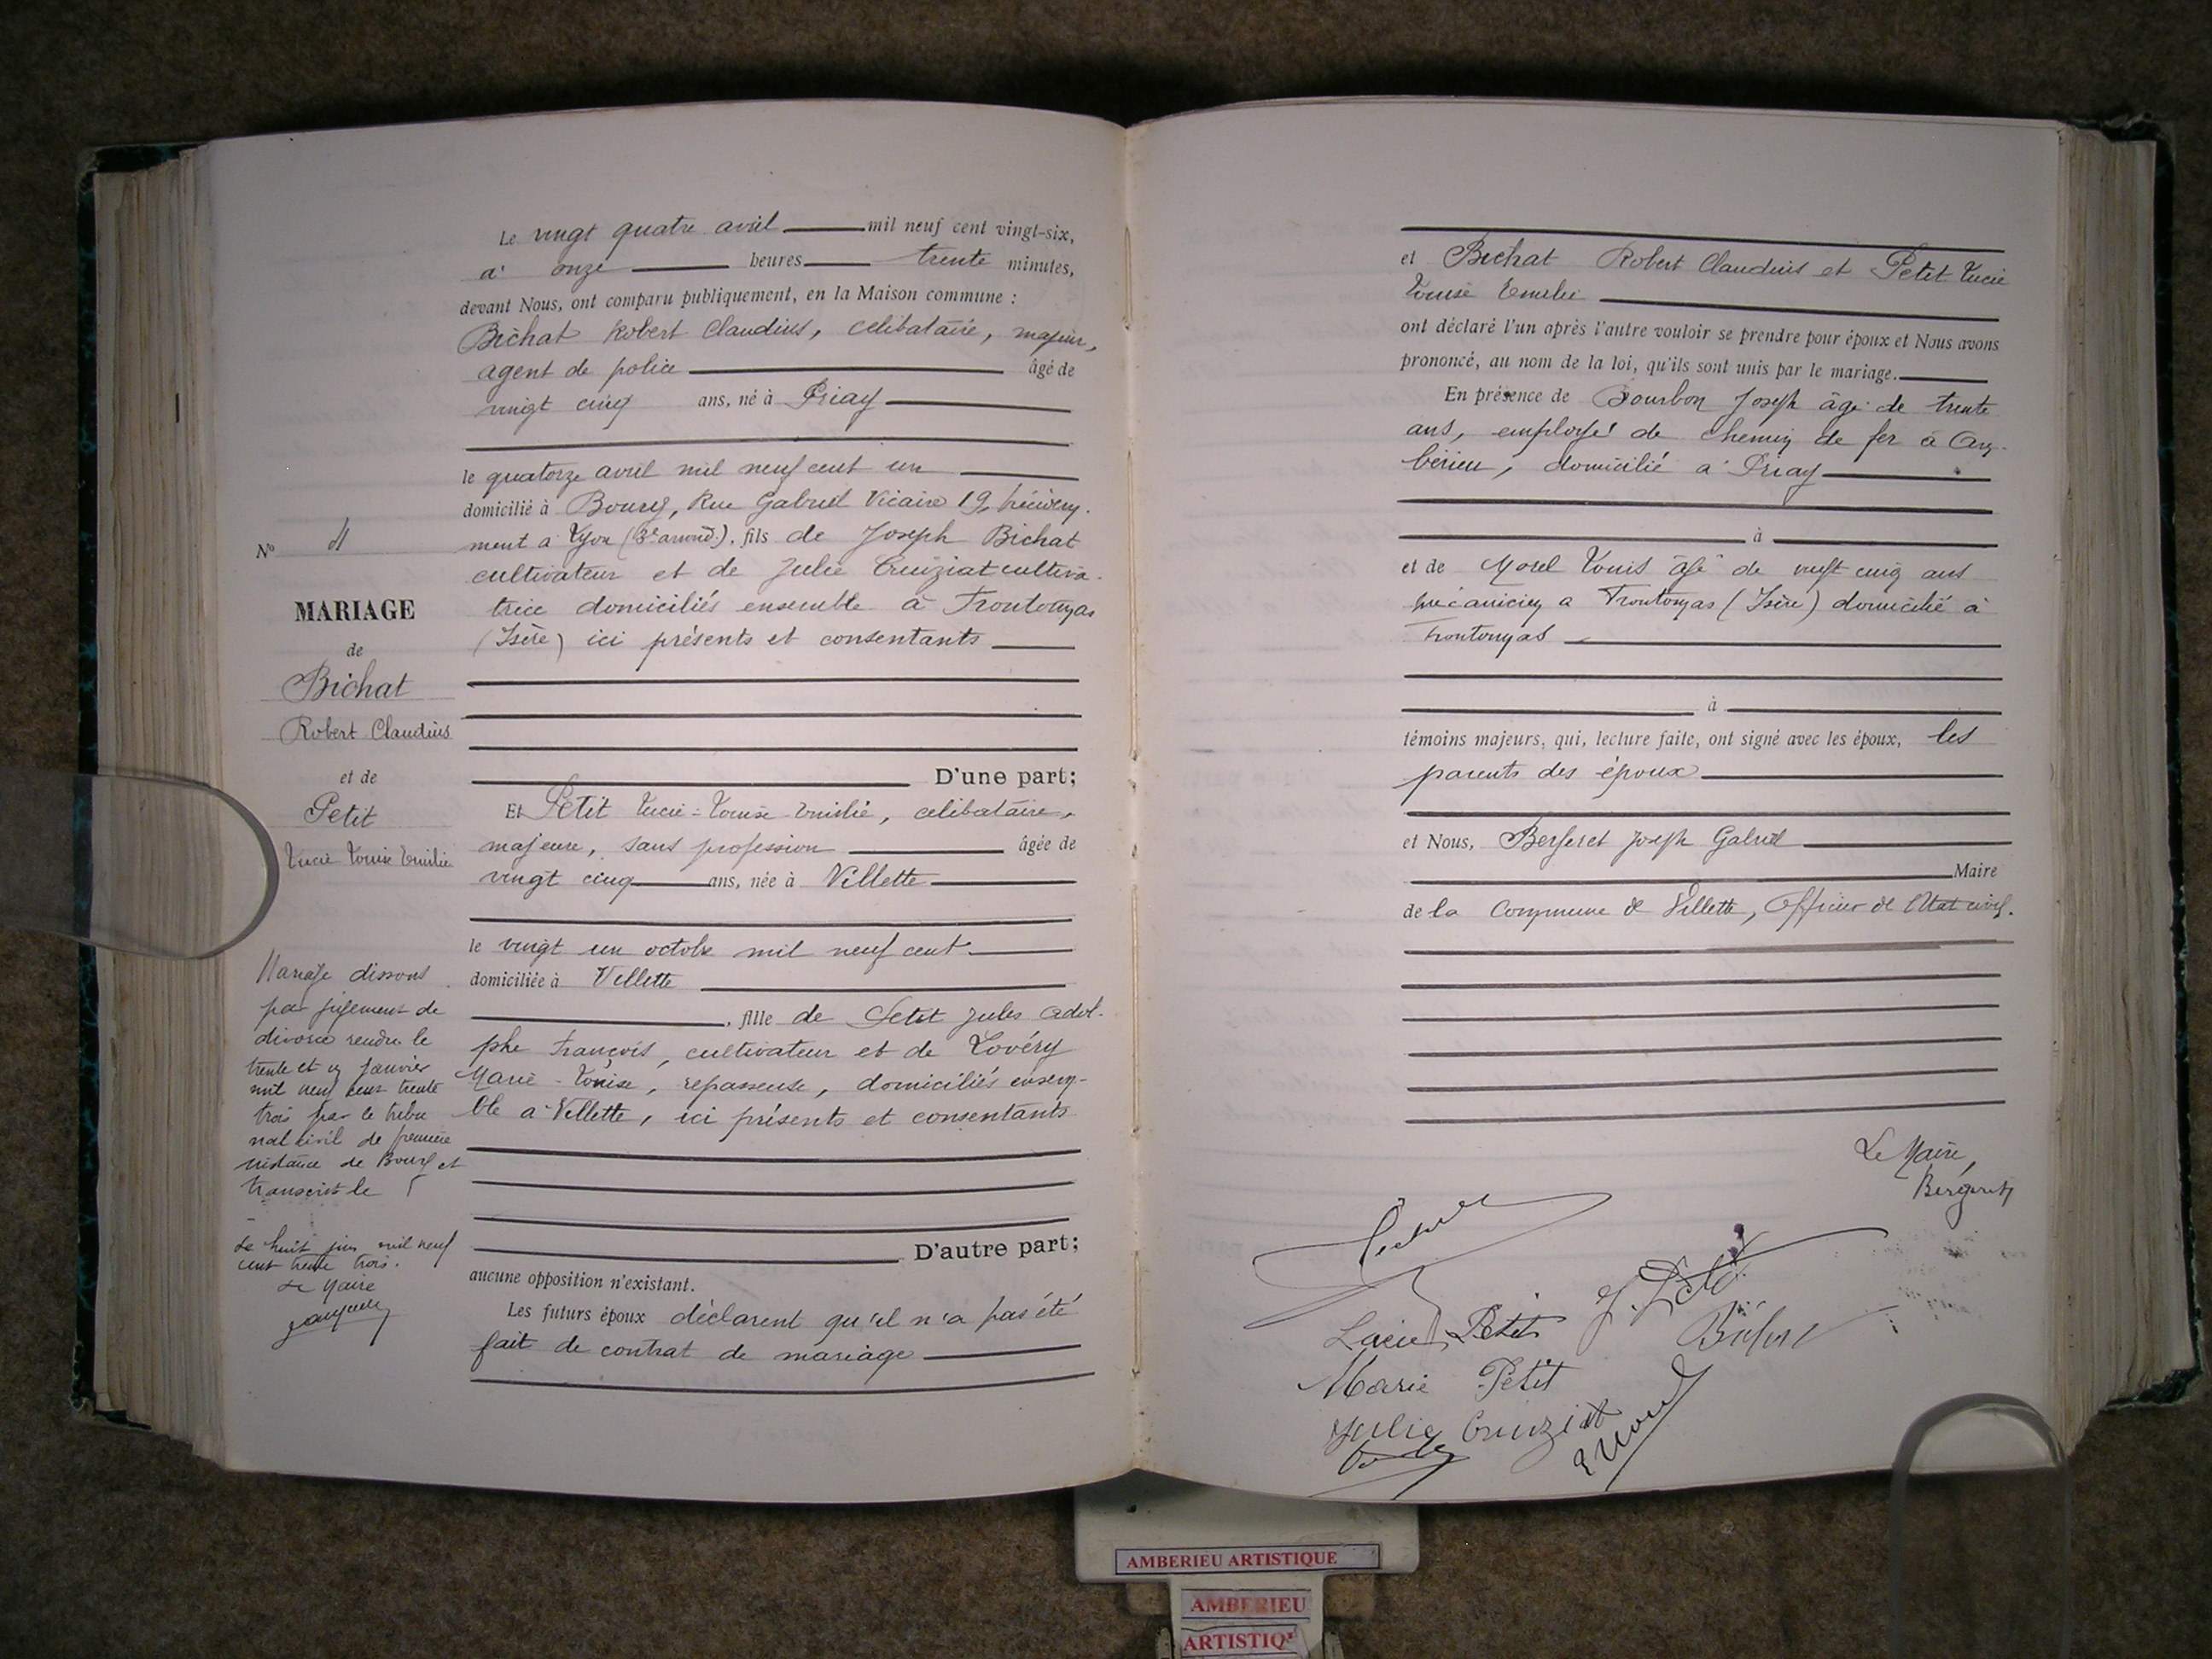 Le vingt quatre avril mil neuf cent vingt-six,
à onze heures trente minutes,
devant Nous, ont comparu publiquement, en la Maison commune :
Bichat Robert Claudius, célibataire, majeur,
agent de police âgé de
vingt cinq ans, né à Priay
le quatorze avril mil neuf cent un
domicilié à Bourg, Rue Gabriel Vicaire 19, précédem.
ment à Lyon (3e arrond.), fils de Joseph Bichat
cultivateur et de Julie Cruiziat cultiva-
trice domiciliés ensemble à Frontonas
(Isère) ici présents et consentants
D'une part;
Et Petit Lucie-Louise Emilie, célibataire,
majeure, sans profession âgée de
vingt cinq ans, née à Villette
le vingt un octobre mil neuf cent
domiciliée à Villette
, fille de Petit Jules Adol-
phe François, cultivateur et de
Marie-Louise, repasseuse, domiciliés ensem-
ble à Villette, ici présents et consentants
D'autre part;
aucune opposition n'existant.
Les futurs époux déclarent qu'il n'a pas été
fait de contrat de mariage
No
MARIAGE
de
Bichat
Robert Claudius
et de
Petit
Lucie Louise Emilie
Mariage dissous
par jugement de
divorce rendu le
trente et un janvier
mil neuf cent trente
trois par le tribu
nal civil de première
instance de Bourg et
transcrit le
Le huit juin mil neuf
cent trente trois.
Le Maire
et Bichat Robert Claudius et Petit Lucie
Louise Emilie
ont déclaré l'un après l'autre vouloir se prendre pour époux et Nous avons
prononcé, au nom de la loi, qu'ils sont unis par le mariage.
En présence de Bourbon Joseph âgé de trente
ans, employé de chemin de fer à Am-
bérieu, domicilié à Priay
à
et de Morel Louis âgé de vingt cinq ans
mécanicien à Frontonas (Isère) domicilié à
Frontonas
à
témoins majeurs, qui, lecture faite, ont signé avec les époux, les
parents des époux
et Nous, Bergeret Joseph Gabriel
Maire
de la Commune de Villette, Officier de l'Etat civil.
Le Maire,
Bergeret
Lucie Petit
Bichat
Marie Petit
Julie Cruiziat
AMBERIEU ARTISTIQUE
AMBERIEU
ARTISTIQ